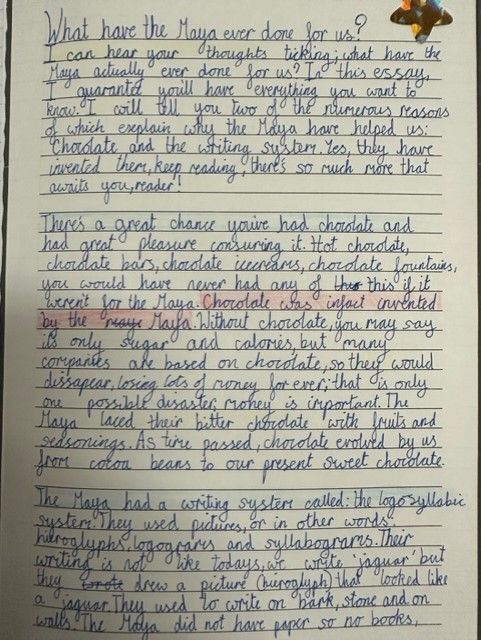 What have the Maya ever done for us?
I can hear your thoughts ticking; what have the
Maya actually ever done for us? In this essay,
I guarantee you'll have everything you want to
know. I will tell you two of the numerous reasons
of which explain why the Maya have helped us:
Chocolate and the writing system. Yes, they have
invented them, keep reading, there's so much more that
awaits you, reader!
There's a great chance you've had chocolate and
had great pleasure consuming it. Hot chocolate,
chocolate bars, chocolate icecreams, chocolate fountains,
you would have never had any of this if it
weren't for the Maya. Chocolate was infact invented
by the Maya. Without chocolate, you may say
its only sugar and calories, but many
companies are based on chocolate, so they would
dissapear, losing lots of money for ever; that is only
one possible disaster, money is important. The
Maya laced their bitter chocolate with fruits and
seasonings. As time passed, chocolate evolved by us
from cocoa beans to our present sweet chocolate.
The Maya had a writing system called: the logosyllabic
system. They used pictures, or in other words:
hieroglyphs, logograms and syllabograms. Their
writing is not like todays, we write 'jaguar' but
they wrote drew a picture (hieroglyph) that looked like
a jaguar. They used to write on bark, stone and on
walls. The Maya did not have paper so no books,